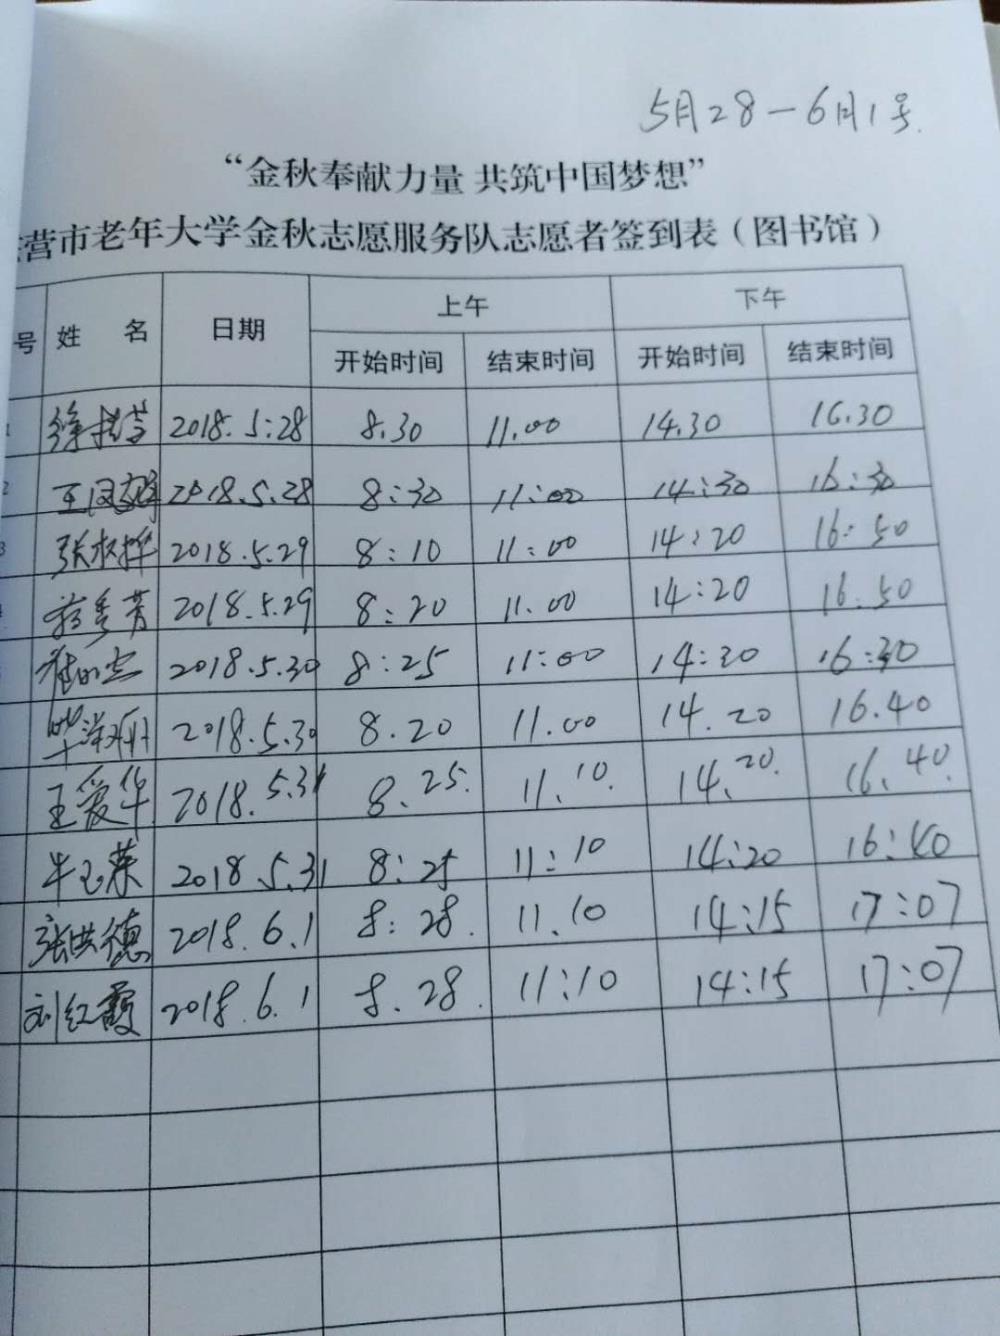 5月28-6月1号.
“金秋奉献力量 共筑中国梦想”
营市老年大学金秋志愿服务队志愿者签到表(图书馆)
号 姓 名 日期 上午 下午
开始时间 结束时间 开始时间 结束时间
2018.5:28 8.30 11.00 14.30 16.30
2 2018.5.28 8:30 11:00 14:30 16:30
3 2018.5.29 8:10 11:00 14:20 16:50
2018.5.29 8:20 11.00 14:20 16.50
2018.5.30 8:25 11:00 14:30 16:30
2018.5.30 8.20 11.00 14.20 16.40
王爱华 2018.5.31 8.25. 11.10. 14.20. 16.40.
牛玉荣 2018.5.31 8:25 11:10 14:20 16:40
张洪德 2018.6.1 8:28. 11.10 14:15 17:07
刘红霞 2018.6.1 8.28. 11:10 14:15 17:07